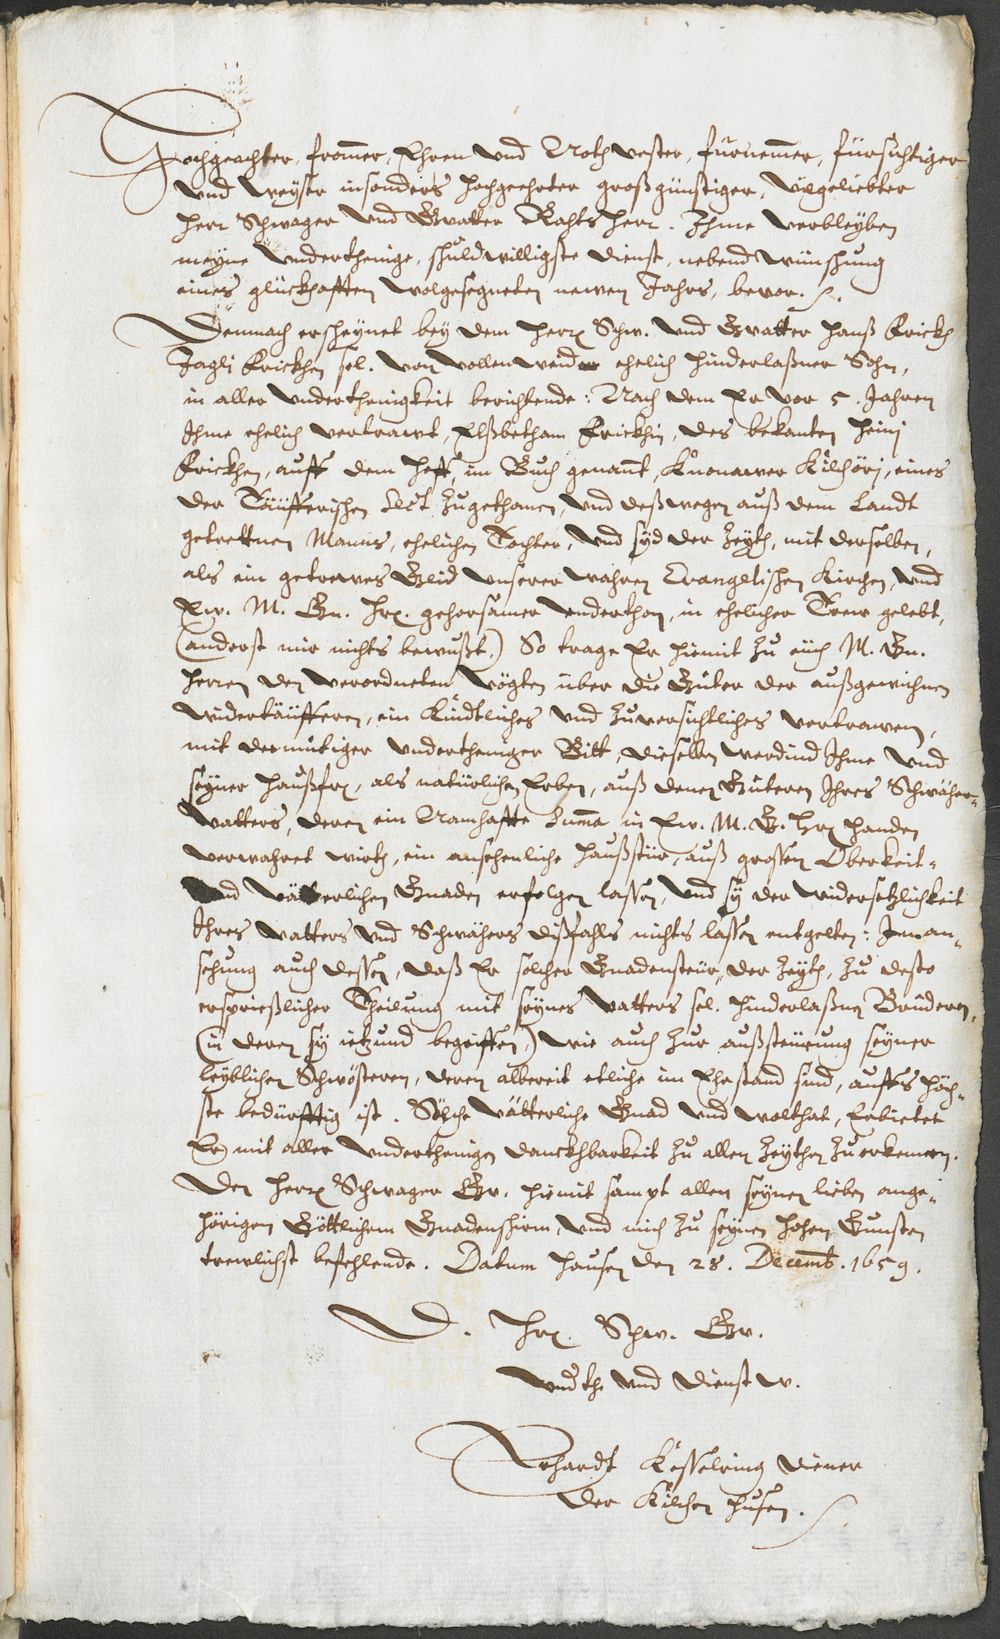 Hochgeachter, frommer, Ehren und Nothvester, fürnemmer, fürsichtiger
und weyser insonders hochgeehrter großgünstiger, vilgeliebter
Herr Schwager und Gvatter Rahtsherr. Ihme verbleyben
meyne underthenige, schuldwilligste dienst, nebend wünschung
eines glückhafften wolgesegneten newen Jahrs, bevor.
Demnach erscheynet bey dem Herrn Schw. und Gvatter Hanß Frickh
Jagli Frickhen sel. von Vollenweid ehelich hinderlaßner Sohn,
in aller underthenigkeit berichtende: Nach dem Er vor 5. Jahren
Ihme ehelich vertrawt, Elßbetham Frickhin, des bekanten Heinj
Frickhen, auff dem Hoff, im Buch genannt, Knonawer Kilchörj, eines
der Täufferischen Sect zugethanen, und deßwegen auß dem Landt
getrettnen Manns, ehelichen Tochter, und syd der Zeyth, mit derselben,
als ein getrewes Glid unserer wahren Evangelischen Kirchen, und
Ew. M. Gn. Hrn. gehorsamer underthan, in ehelicher Trew gelebt,
(anderst mir nichts bewußt.) So trage Er hiemit zu euch M. Gn.
Herren den verordneten Vögten über die Güter der außgewichnen
widertäufferen, ein Kindtliches und zuversichtliches vertrawen,
mit demütiger undertheniger Bitt, dieselben werdind Ihme und
seyner Haußfrn, als natürlichen Erben, auß denen Güteren Ihres Schwäher-
vatters, deren ein Namhaffte Summa in Ew. M. G. Hrn handen
verwahret wirth, ein ansehenliche haußstür, auß grossen Oberkeit-
und vätterlichen Gnaden erfolgen lassen, und sy der widersetzlichkeit
Ihres vatters und Schwähers dißfahls nichts lassen entgelten: In an-
sehung auch dessen, daß Er solcher Gnadensteür, der Zeyth, zu desto
ersprießlicher Theilung mit seynes Vatters sel. hinderlaßnen Brüderen,
(in deren sy ietzund begriffen,) wie auch zur außsteürung seyner
leyblichen Schwösteren, deren albereit etliche im Ehestand sind, auffs höch-
ste bedürfftig ist. Solche vätterliche Gnad und wolthat, Erbietet
Er mit aller underthenigen danckhbarkeit zu allen Zeythen zu erkennen.
Den Herrn Schwager Gv. hiemit sampt allen seynen lieben ange-
hörigen Göttlichem Gnadenschirm, und mich zu seynen hohen Gunsten
trewlichst befehlende. Datum Hausen den 28. Decemb. 1659.
D. Hrn. Schw. Gv.
undth. und dienstw.
Erhardt Kesselring diener
der Kilchen Husen.